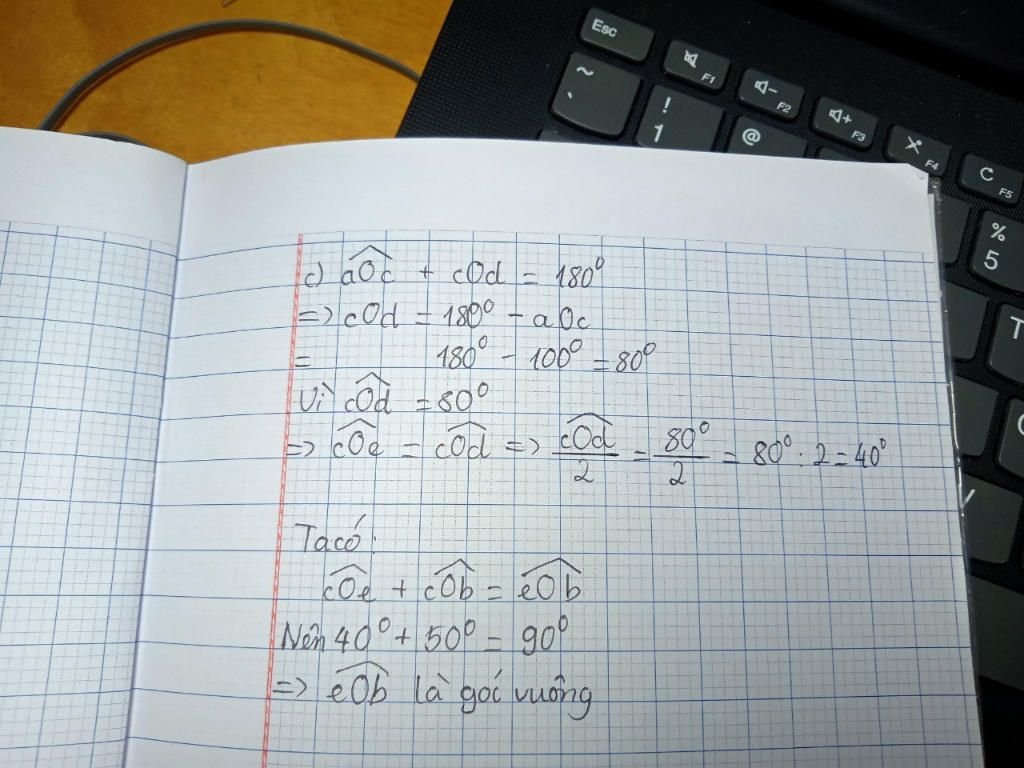 Esc
F1
F2
F3
F4
F5
~
`
!
1
@
%
5
T
c) aÔc + cOd = 180⁰
=> cOd = 180⁰ - aOc
= 180⁰ - 100⁰ = 80⁰
Vì cÔd = 80⁰
=> cÔe = cÔd => cÔd/2 = 80⁰/2 = 80⁰ : 2 = 40⁰
Ta có :
cÔe + cÔb = eÔb
Nên 40⁰ + 50⁰ = 90⁰
=> eÔb là goí vuông